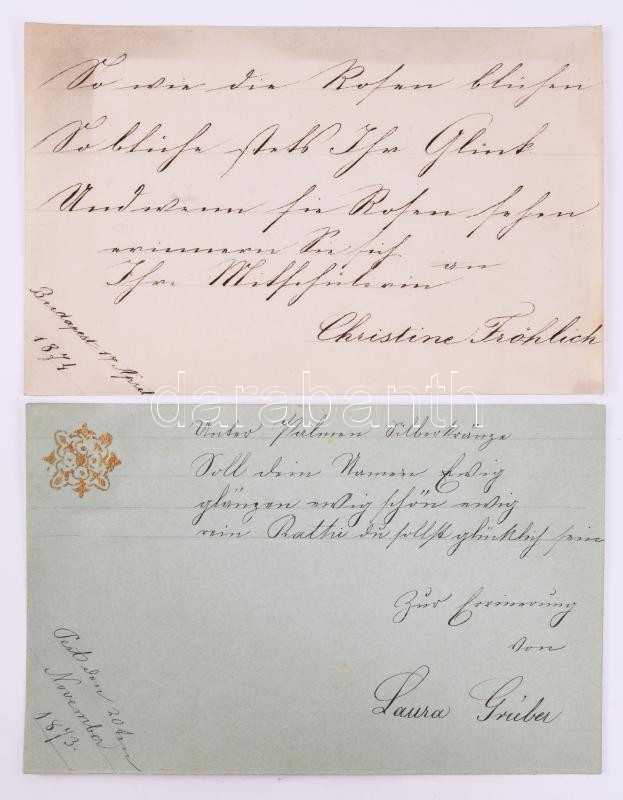 So wie die Rosen blühen
So blühe stets Ihr Glück
Und wenn sie Rosen sehen
erinnern Sie sich an
Ihre Mitschülerin
Christine Fröhlich
Budapest 17 April
1874
darabanth
Unter Palmen Silberkränze
Soll dein Namen Ewig
glänzen ewig schön ewig
rein Kathi du sollst glücklich sein
Zur Erinerung
von
Laura Grüber
Pest den 20ten
November
1873.